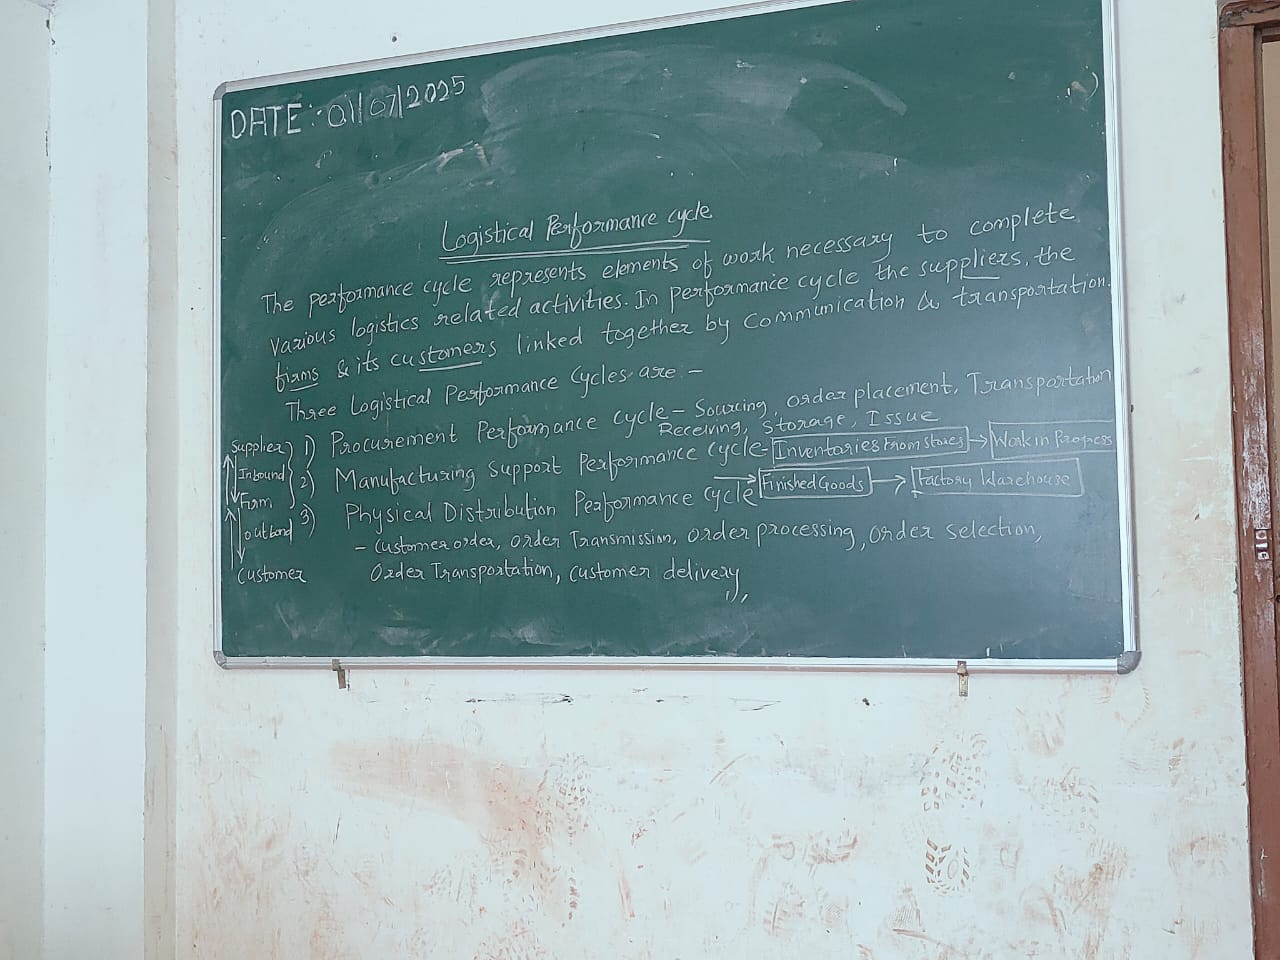 DATE: 01/07/2025
Logistical Performance cycle
The performance cycle represents elements of work necessary to complete
various logistics related activities. In performance cycle the suppliers, the
firms & its customers linked together by communication & transportation.
Three Logistical Performance Cycles are :-
1) Procurement Performance cycle - Sourcing, order placement, Transportation
Receiving, Storage, Issue
2) Manufacturing Support Performance cycle- Inventories From stores → Work in Progress
→ Finished Goods → Factory Warehouse
3) Physical Distribution Performance cycle
- Customer order, order Transmission, order processing, order selection,
Order Transportation, customer delivery
Supplier
Inbound
Firm
outband
Customer